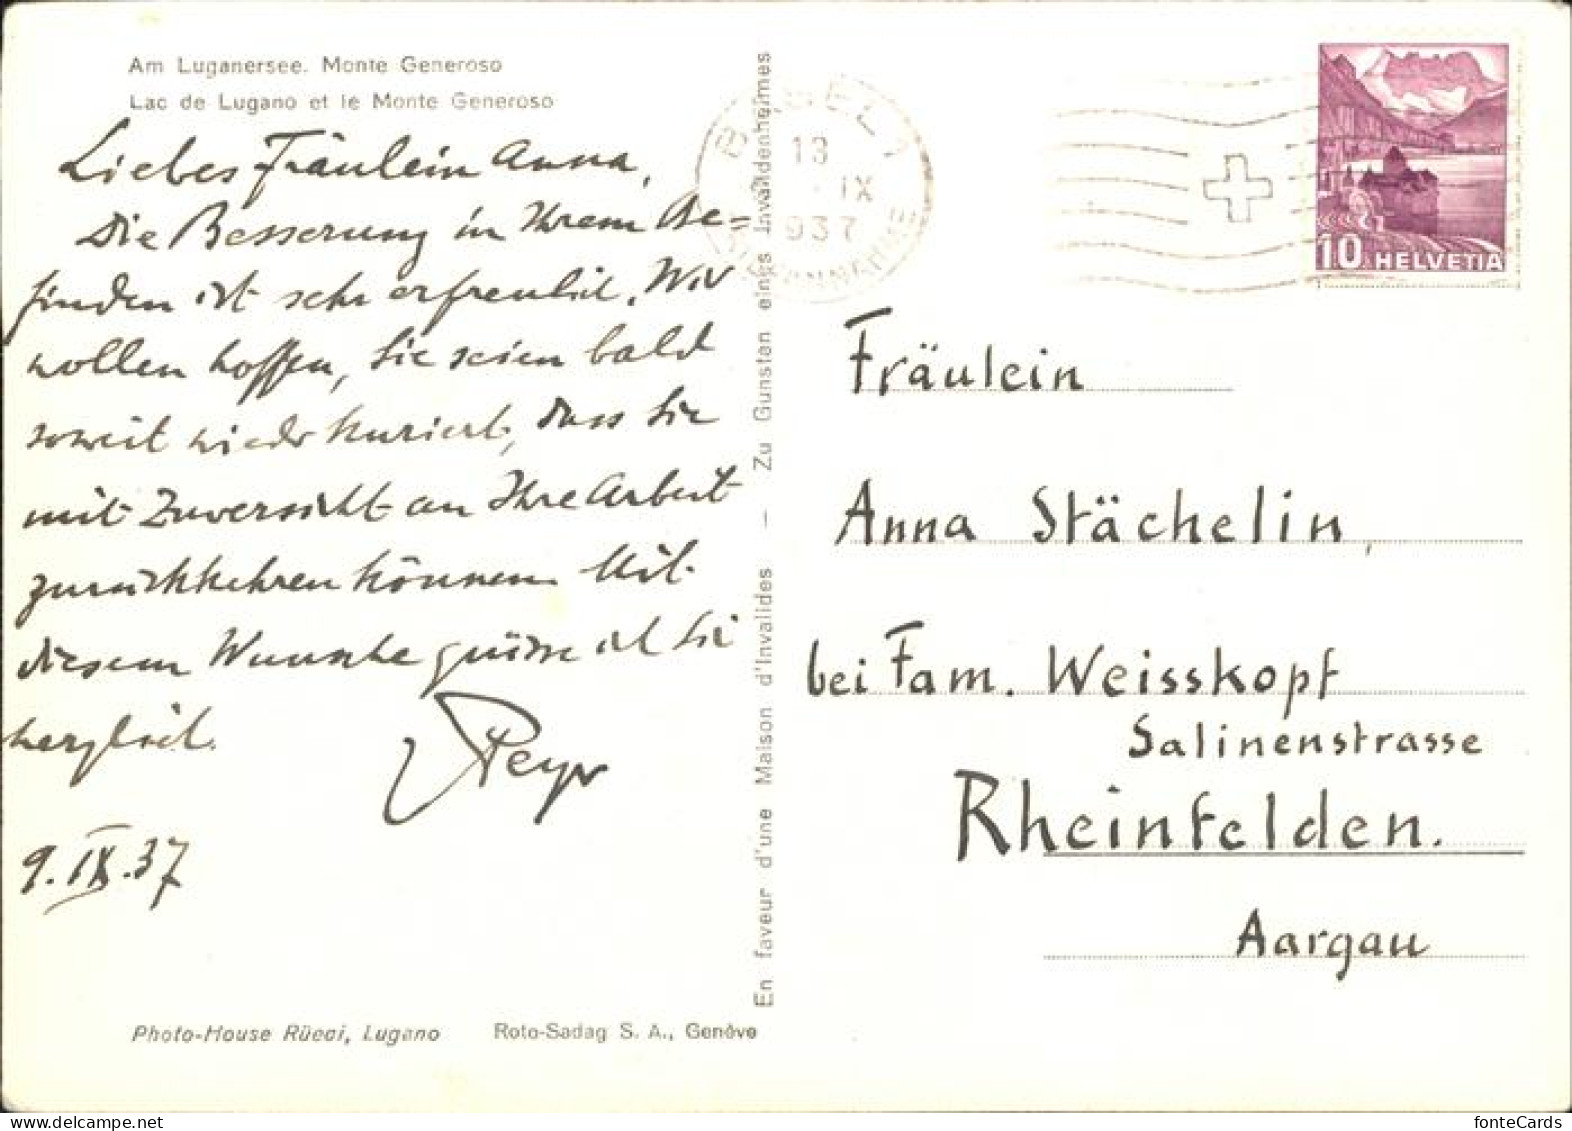 Am Luganersee. Monte Generoso
Lac de Lugano et le Monte Generoso
Liebes Fräulein Anna,
Die Besserung in Ihrem Be=
finden ist sehr erfreulich. Wir
wollen hoffen, Sie seien bald
soweit wieder kuriert, dass Sie
mit Zuversicht an Ihre Arbeit
zurückkehren können. Mit
diesem Wunsche grüsse ich Sie
herzlich.
9. IX. 37
Photo-House Rüeci, Lugano
Roto-Sadag S. A., Genève
En faveur d'une Maison d'Invalides — Zu Gunsten eines Invalidenheimes
BASEL 1
13
IX
1937
BRIEFANNAHME
10 HELVETIA
Fräulein
Anna Stächelin,
bei Fam. Weisskopf
Salinenstrasse
Rheinfelden.
Aargau
fonteCards